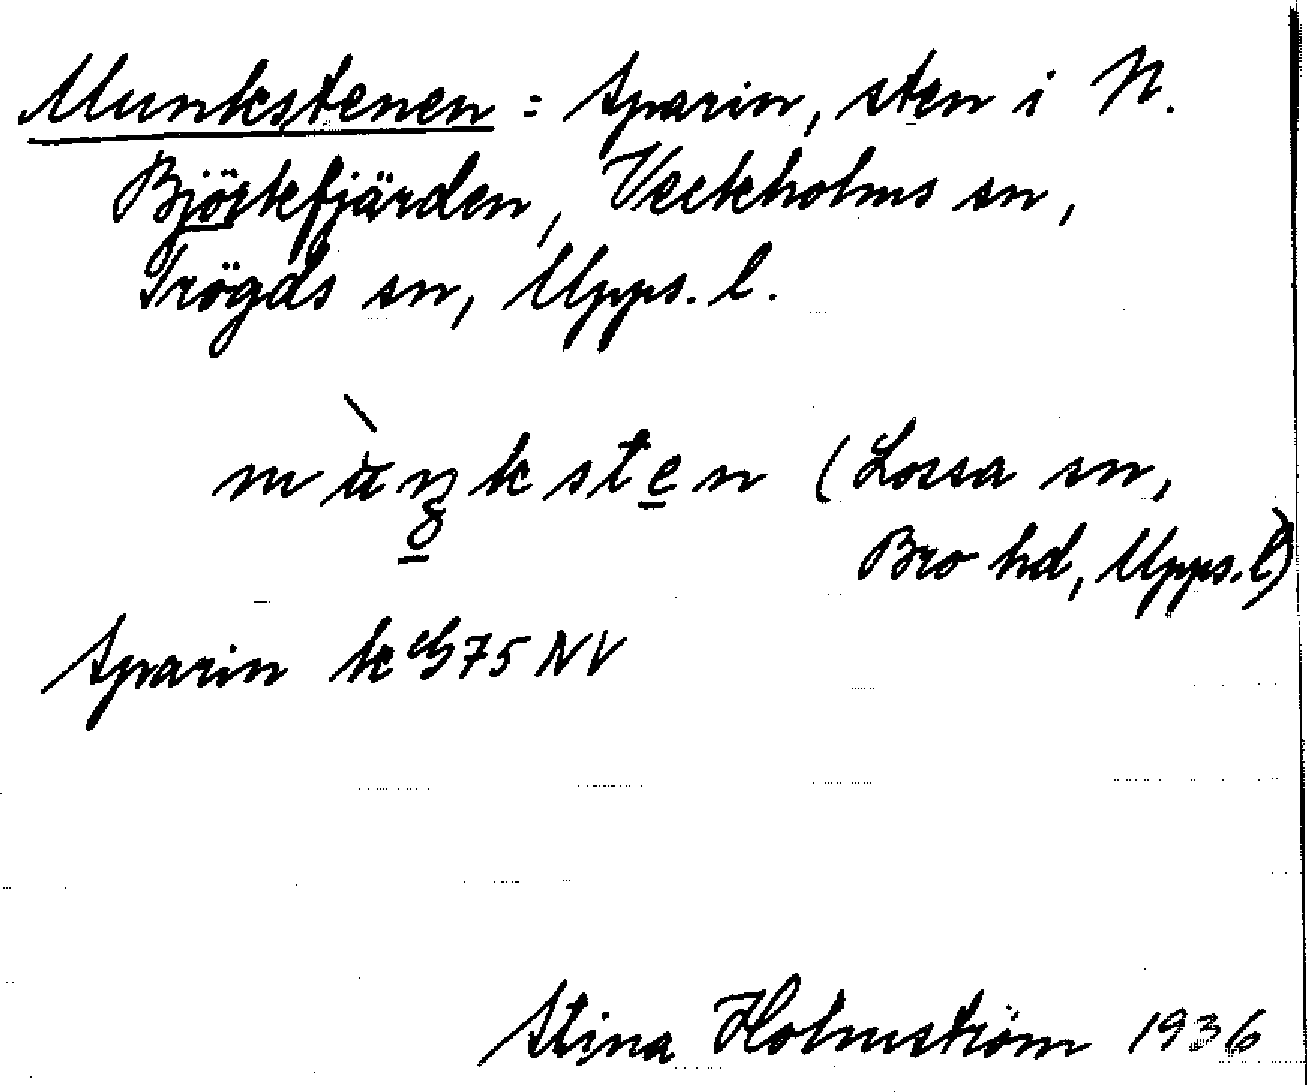 Munkstenen = Sparin, sten i N.
Björkfjärden, Veckholms sn,
Trögds sn, Upps. l.
(Lossa sn,
Bro hd, Upps. l)
Sparin k G75 NV
Stina Holmström 1936